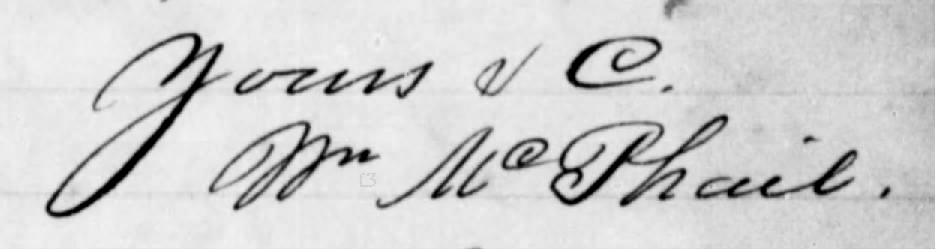 Yours & C.
Wm McPhail.